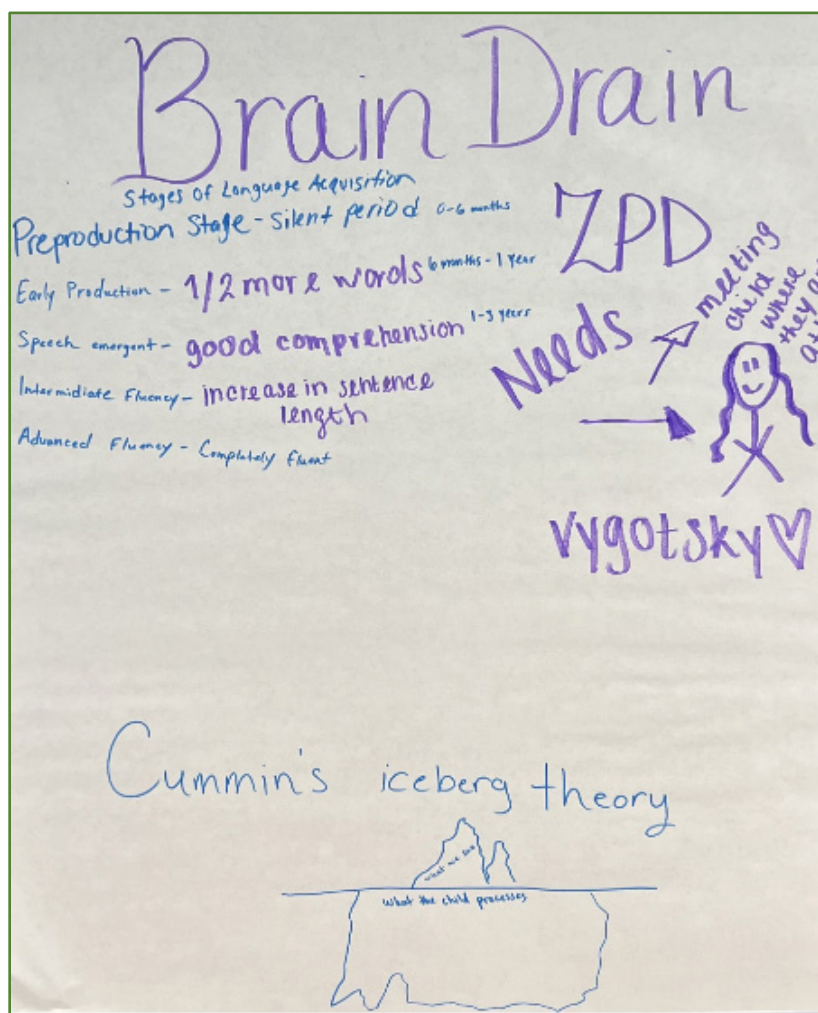 Brain Drain
Stages of Language Acquisition
Preproduction Stage - Silent period 0-6 months
Early Production - 1/2 more words 6 months - 1 year
Speech emergent - good comprehension 1-3 years
Intermidiate Fluency - increase in sentence
length
Advanced Fluency - Completely fluent
ZPD
Needs
meeting
child
where
they
at
Vygotsky
Cummin's iceberg theory
what we see
what the child processes